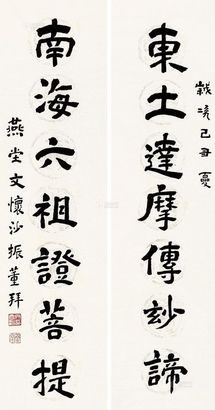 東土達摩傳玅諦
歲次己丑夏
南海六祖證菩提
燕堂文懷沙振董拜